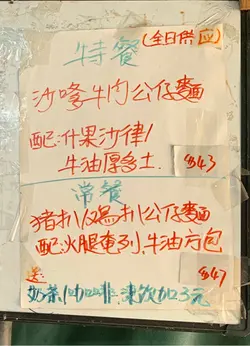 特餐 (全日供应)
沙嗲牛肉公仔麵
配:什果沙律/
牛油厚多士.
$43
常餐
猪扒/双鸡扒公仔麵
配:火腿蛋列,牛油方包
$47
送:
奶茶/咖啡 凍饮加3元